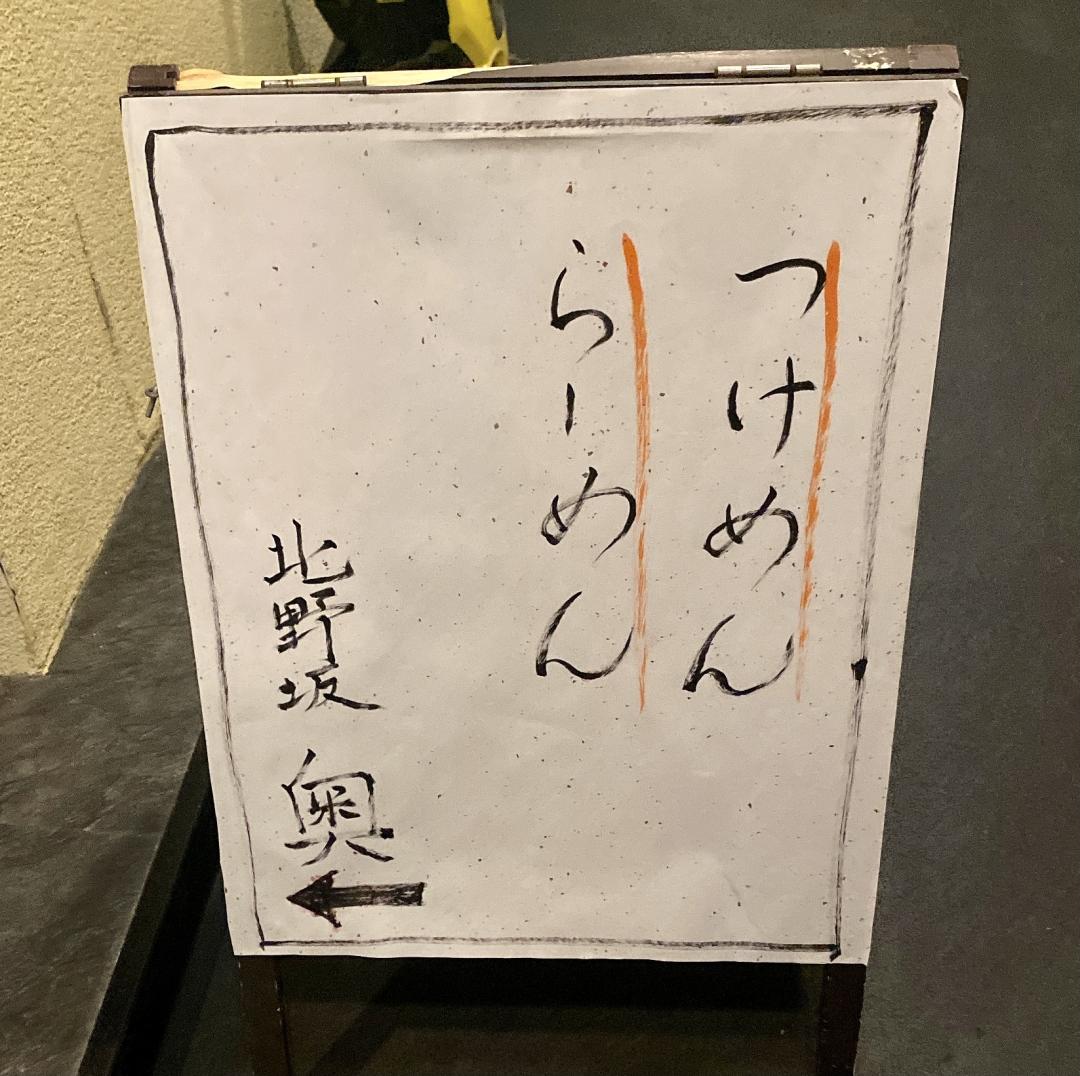 つけめん
らーめん
北野坂 奥